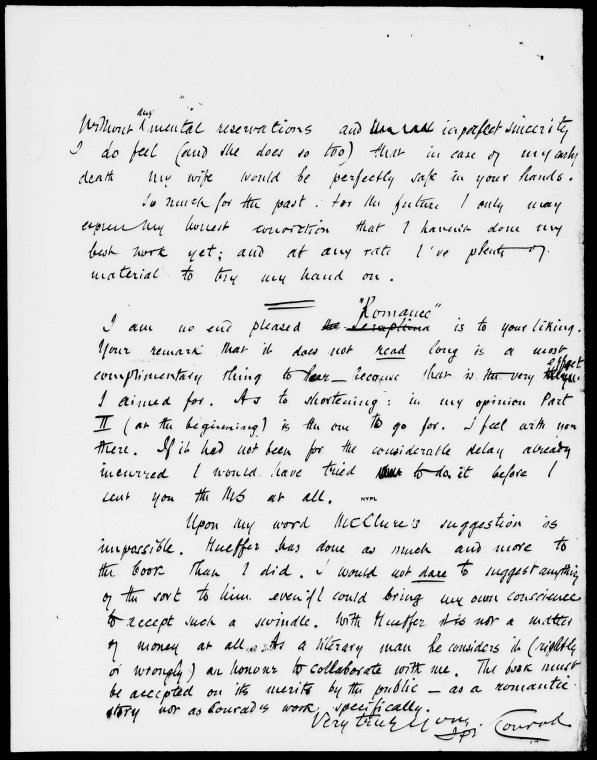 Without any mental reservations and imperfect sincerity
I do feel (and she does so too) that in case of my early
death my wife would be perfectly safe in your hands.
So much for the past. For the future I only may
express my honest conviction that I haven't done my
best work yet; and at any rate I've plenty of
material to try my hand on.
"Romance"
I am no end pleased the Seraphina is to your liking.
Your remark that it does not read long is a most
complimentary thing to hear — because that is the very effect
I aimed for. As to shortening: in my opinion Part
II (at the beginning) is the one to go for. I feel with you
there. If it had not been for the considerable delay already
incurred I would have tried to do it before I
sent you the MS at all.
NYPL
Upon my word McClure's suggestion is
impossible. Hueffer has done as much and more to
the book than I did. I would not dare to suggest anything
of the sort to him even if I could bring my own conscience
to accept such a swindle. With Hueffer it is not a matter
of money at all. As a literary man he considers it (rightly
or wrongly) an honour to collaborate with me. The book must
be accepted on its merits by the public — as a romantic
story not as Conrad's work specifically.
Very truly yours
Jph Conrad